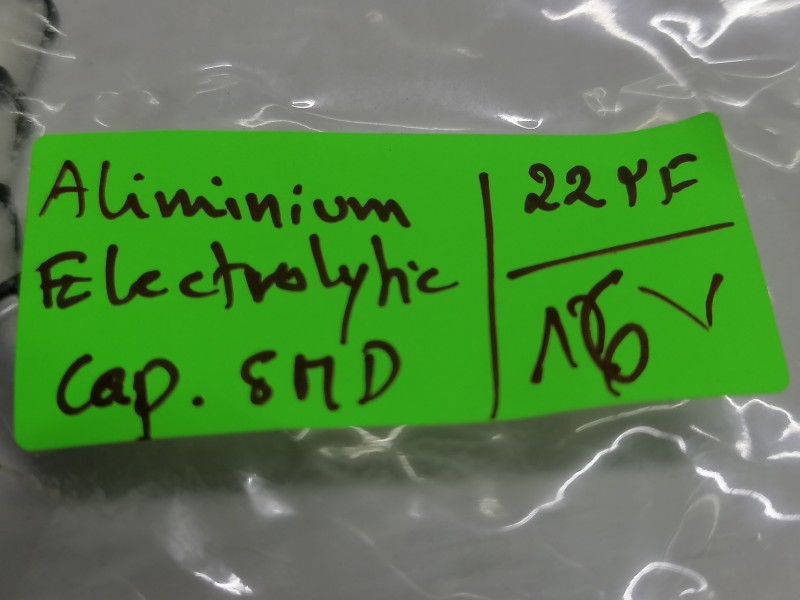 Aliminium
Electrolytic
Cap. SMD
22 µF
16 V